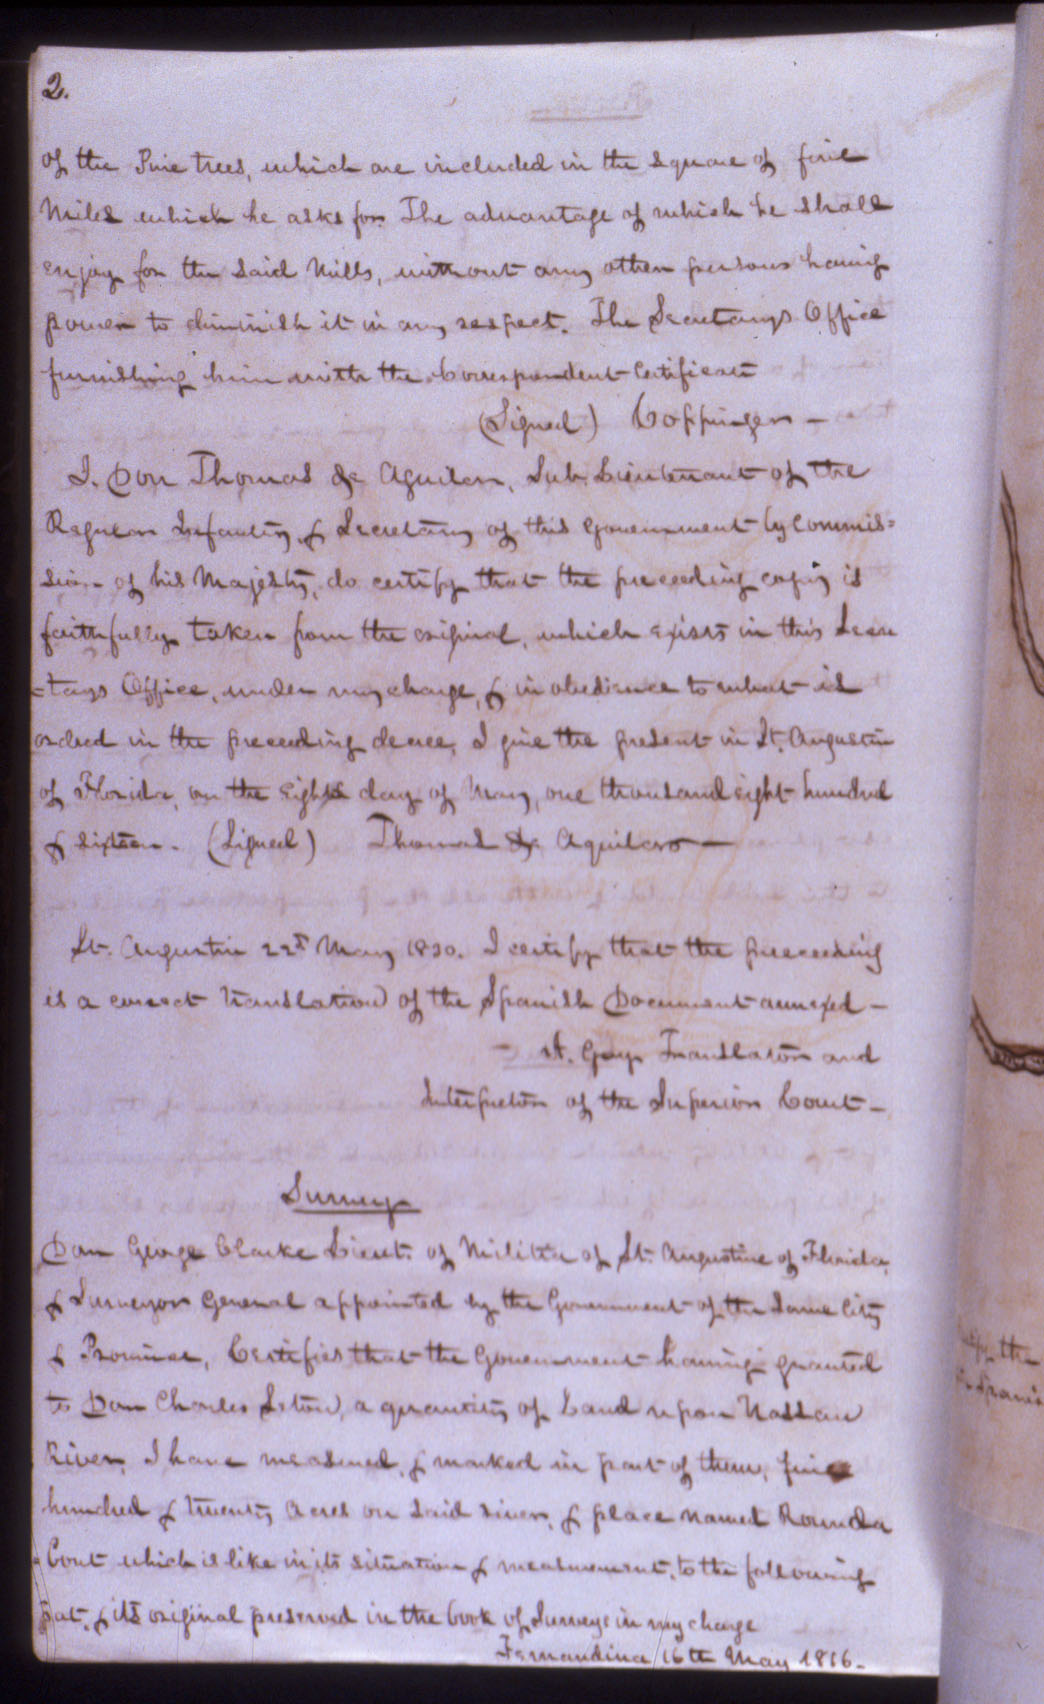 2.
of the Pine trees, which are included in the square of five
Miles which he asks for. The advantage of which he shall
enjoy for the said Mills, without any other persons having
power to diminish it in any respect. The Secretarys Office
furnishing him with the Correspondent Certificate
(Signed) Coppinger —
I. Don Thomas de Aguilar, Sub. Lieutenant of the
Regular Infantry, & Secretary of this Government by Commis=
sion of his Majesty, do certify that the preceeding copy is
faithfully taken from the original, which exists in this Secre
=tarys Office, under my charge, & in obedience to what is
ordred in the preceeding decree, I give the present in St. Augustin
of Florida, on the Eighth day of May, one thousand eight hundred
& sixteen. (Signed) Thomas de Aguilar —
St. Augustin 22d May 1830. I certify that the preceeding
is a correct translation of the Spanish Document annexed —
Gay Translator and
Interpretor of the Superior Court —
Survey
Don George Clarke Lieut. of Militia of St. Augustine of Florida,
& Surveyor General appointed by the Government of the Same City
& Province, Certifies that the Government having granted
to Don Charles Seton, a quantity of Land upon Nassau
River, I have measured, & marked in part of them, five
hundred & twenty Acres on said river, & place named
Cout which is like in its situation & measurement, to the following
plat, & its original preserved in the book of Surveys in my charge
Fernandina 16th May 1816.
the